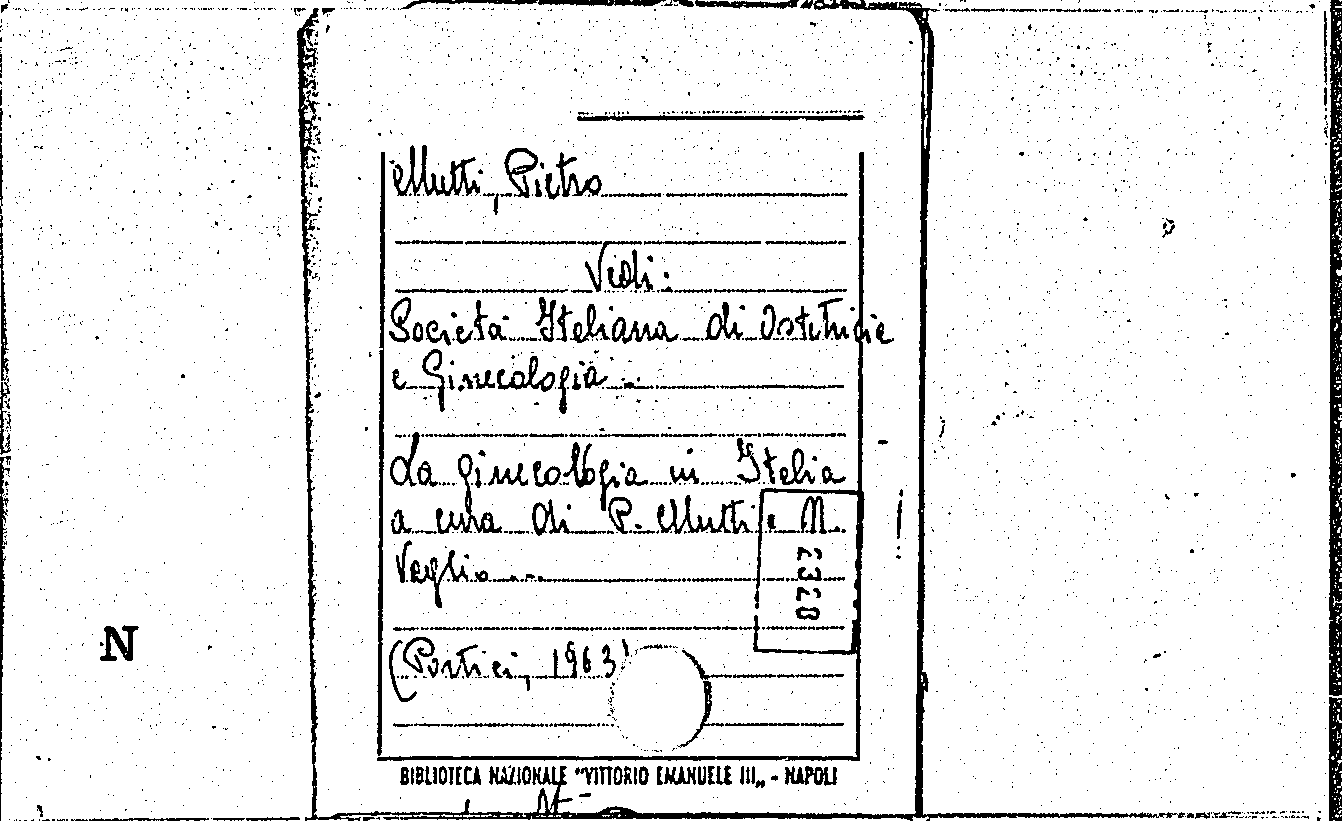 Mutti, Pietro
Vedi:
Società Italiana di Ostetricia
e Ginecologia -
La ginecologia in Italia
a cura di P. Mutti e N.
Veglio...
(Portici, 1963)
2328
N
BIBLIOTECA NAZIONALE "VITTORIO EMANUELE III„ - NAPOLI